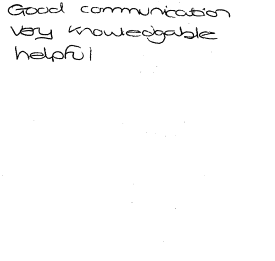 Good communication
Very knowledgable
helpful